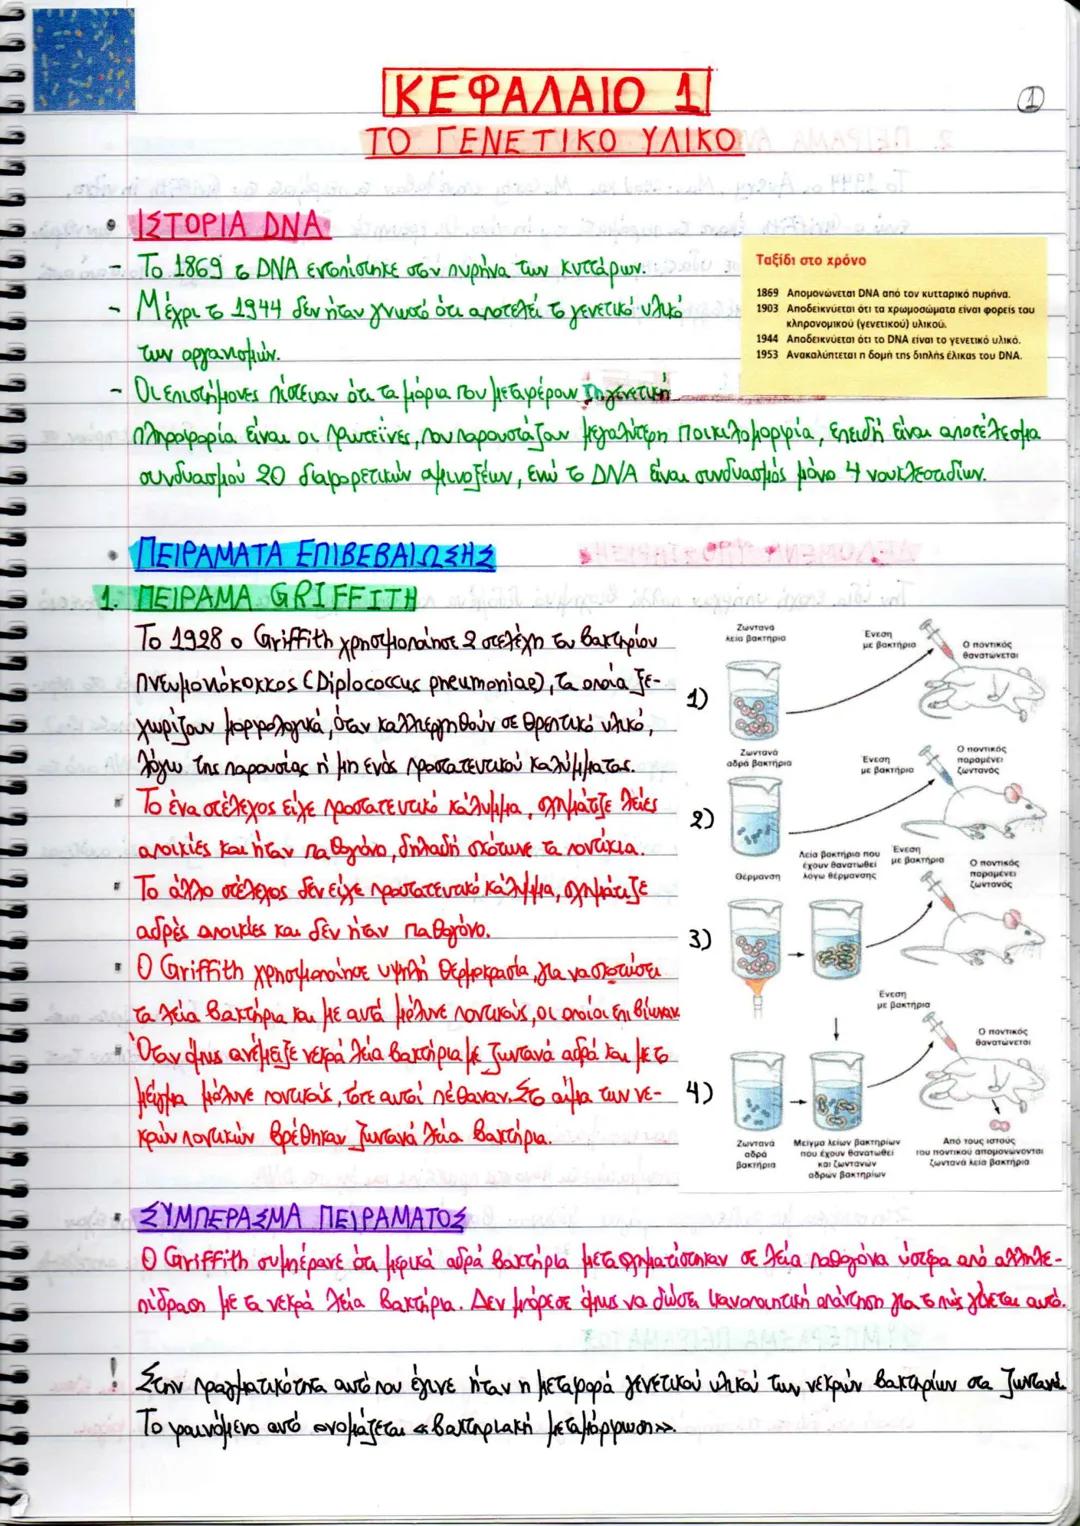 ΚΕΦΑΛΑΙΟ 1
1
ΤΟ ΓΕΝΕΤΙΚΟ ΥΛΙΚΟ
• ΙΣΤΟΡΙΑ DNA
- Το 1869 το DNA εντοπίστηκε στον πυρήνα των κυττάρων.
- Μέχρι το 1944 δεν ήταν γνωστό ότι αποτελεί το γενετικό υλικό
των οργανισμών.
- Οι επιστήμονες πίστευαν ότι τα μόρια που μεταφέρουν τη γενετική
πληροφορία είναι οι πρωτεΐνες, που παρουσιάζαν μεγαλύτερη ποικιλομορφία, επειδή είναι αποτέλεσμα
συνδυασμού 20 διαφορετικών αμινοξέων, ενώ το DNA είναι συνδυασμός μόνο 4 νουκλεοτιδίων.
Ταξίδι στο χρόνο
1869 Απομονώνεται DNA από τον κυτταρικό πυρήνα.
1903 Αποδεικνύεται ότι τα χρωμοσώματα είναι φορείς του
κληρονομικού (γενετικού) υλικού.
1944 Αποδεικνύεται ότι το DNA είναι το γενετικό υλικό.
1953 Ανακαλύπτεται η δομή της διπλής έλικας του DNA.
• ΠΕΙΡΑΜΑΤΑ ΕΠΙΒΕΒΑΙΩΣΗΣ
1. ΠΕΙΡΑΜΑ GRIFFITH
Το 1928 ο Griffith χρησιμοποίησε 2 στελέχη του βακτηρίου
πνευμονιόκοκκος (Diplococcus pneumoniae), τα οποία ξε-
χωρίζουν μορφολογικά, όταν καλλιεργηθούν σε θρεπτικό υλικό,
λόγω της παρουσίας ή μη ενός προστατευτικού καλύμματος.
▪ Το ένα στέλεχος είχε προστατευτικό κάλυμμα, σχημάτιζε λείες
αποικίες και ήταν παθογόνο, δηλαδή σκότωνε τα ποντίκια.
▪ Το άλλο στέλεχος δεν είχε προστατευτικό κάλυμμα, σχημάτιζε
αδρές αποικίες και δεν ήταν παθογόνο.
▪ Ο Griffith χρησιμοποίησε υψηλή θερμοκρασία, για να σκοτώσει
τα λεία βακτήρια και με αυτά μόλυνε ποντικούς, οι οποίοι επιβίωναν
▪ Όταν όμως ανέμειξε νεκρά λεία βακτήρια με ζωντανά αδρά και με το
μείγμα μόλυνε ποντικούς, τότε αυτοί πέθαναν. Στο αίμα των νε-
κρών ποντικών βρέθηκαν ζωντανά λεία βακτήρια.
Ζωντανά
λεία βακτήρια
Ένεση
με βακτήρια
Ο ποντικός
θανατώνεται
1)
Ζωντανά
αδρά βακτήρια
Ένεση
με βακτήρια
Ο ποντικός
παραμένει
ζωντανός
2)
Θέρμανση
Λεία βακτήρια που
έχουν θανατωθεί
λόγω θέρμανσης
Ένεση
με βακτήρια
Ο ποντικός
παραμένει
ζωντανός
3)
Ένεση
με βακτήρια
Ο ποντικός
θανατώνεται
4)
Ζωντανά
αδρά
βακτήρια
Μείγμα λείων βακτηρίων
που έχουν θανατωθεί
και ζωντανών
αδρών βακτηρίων
Από τους ιστούς
του ποντικού απομονώνονται
ζωντανά λεία βακτήρια
▪ ΣΥΜΠΕΡΑΣΜΑ ΠΕΙΡΑΜΑΤΟΣ
Ο Griffith συμπέρανε ότι μερικά αδρά βακτήρια μετασχηματίστηκαν σε λεία παθογόνα ύστερα από αλληλε-
πίδραση με τα νεκρά λεία βακτήρια. Δεν μπόρεσε όμως να δώσει ικανοποιητική απάντηση για το πώς γίνεται αυτό.
! Στην πραγματικότητα αυτό που έγινε ήταν η μεταφορά γενετικού υλικού των νεκρών βακτηρίων στα ζωντανά.
Το φαινόμενο αυτό ονομάζεται «βακτηριακή μεταμόρφωση».